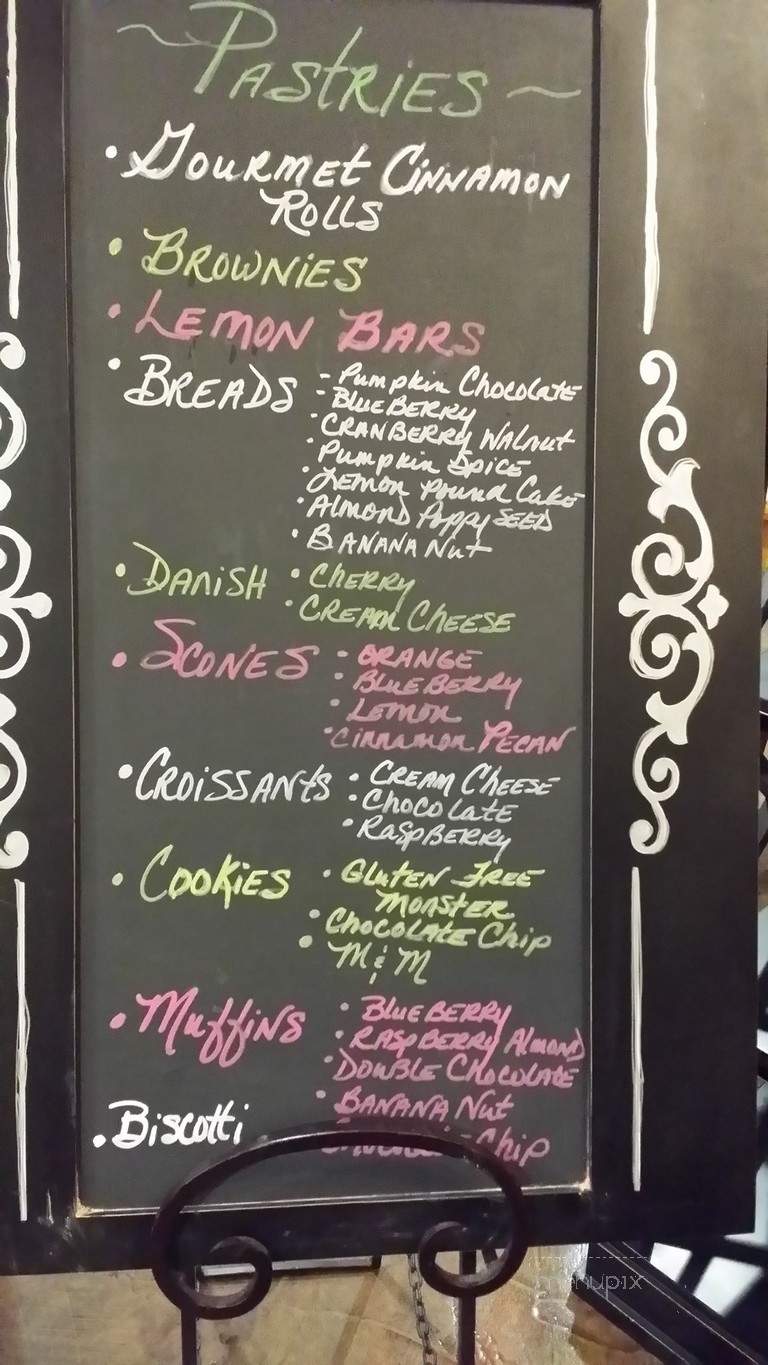 ~ Pastries ~
• Gourmet Cinnamon
Rolls
• Brownies
• Lemon Bars
• Breads - Pumpkin Chocolate
- Blueberry
• Cranberry Walnut
• Pumpkin Spice
• Lemon Pound Cake
• Almond Poppy Seed
• Banana Nut
• Danish • Cherry
• Cream Cheese
• Scones • Orange
• Blueberry
• Lemon
• Cinnamon Pecan
• Croissants • Cream Cheese
• Chocolate
• Raspberry
• Cookies • Gluten Free
Monster
• Chocolate Chip
• M & M
• Muffins • Blueberry
• Raspberry Almond
• Double Chocolate
• Banana Nut
• Biscotti
Chip
menupix